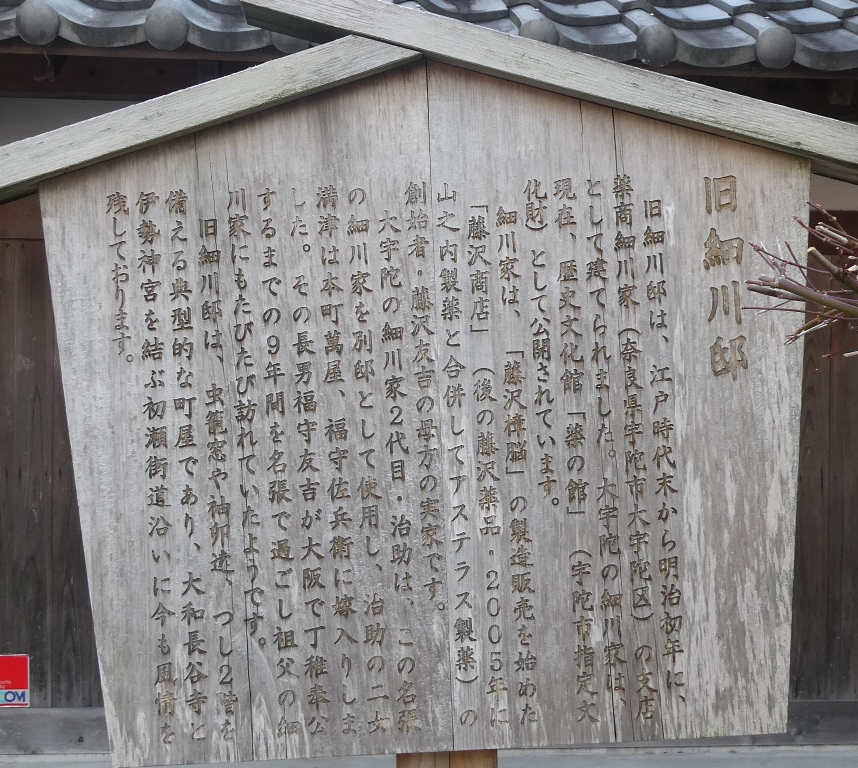 旧細川邸
旧細川邸は、江戸時代末から明治初年に、
薬商細川家（奈良県宇陀市大宇陀区）の支店
として建てられました。大宇陀の細川家は、
現在、歴史文化館「薬の館」（宇陀市指定文
化財）として公開されています。
細川家は、「藤沢樟脳」の製造販売を始めた
「藤沢商店」（後の藤沢薬品・2005年に
山之内製薬と合併してアステラス製薬）の
創始者・藤沢友吉の母方の実家です。
大宇陀の細川家2代目・治助は、この名張
の細川家を別邸として使用し、治助の二女
満津は本町萬屋、福守佐兵衛に嫁入りしま
した。その長男福守友吉が大阪で丁稚奉公
するまでの9年間を名張で過ごし祖父の細
川家にもたびたび訪れていたようです。
旧細川邸は、虫籠窓や袖卯建、つし2階を
備える典型的な町屋であり、大和長谷寺と
伊勢神宮を結ぶ初瀬街道沿いに今も風情を
残しております。
OM